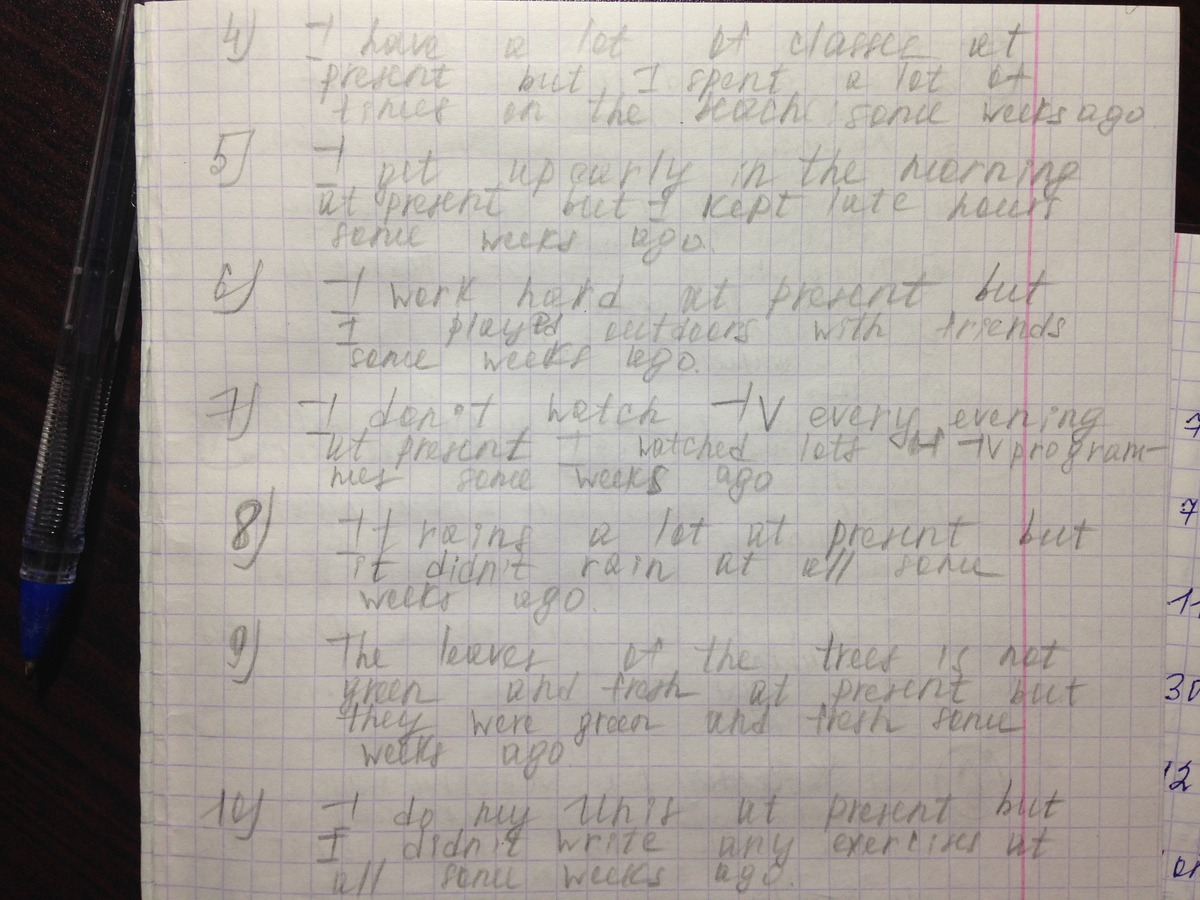 4) I have a lot of classes at
present but I spent a lot of
times on the beach some weeks ago
5) I get up early in the morning
at present but I kept late hours
some weeks ago.
6) I work hard at present but
I played outdoors with friends
some weeks ago.
7) I don't watch TV every evening
at present I watched lots TV program-
mes some weeks ago
8) It rains a lot at present but
it didn't rain at all some
weeks ago.
9) The leaves of the trees is not
green and fresh at present but
they were green and fresh some
weeks ago
10) I do my at present but
I didn't write any exercises at
all some weeks ago.
7
7
11
30
12